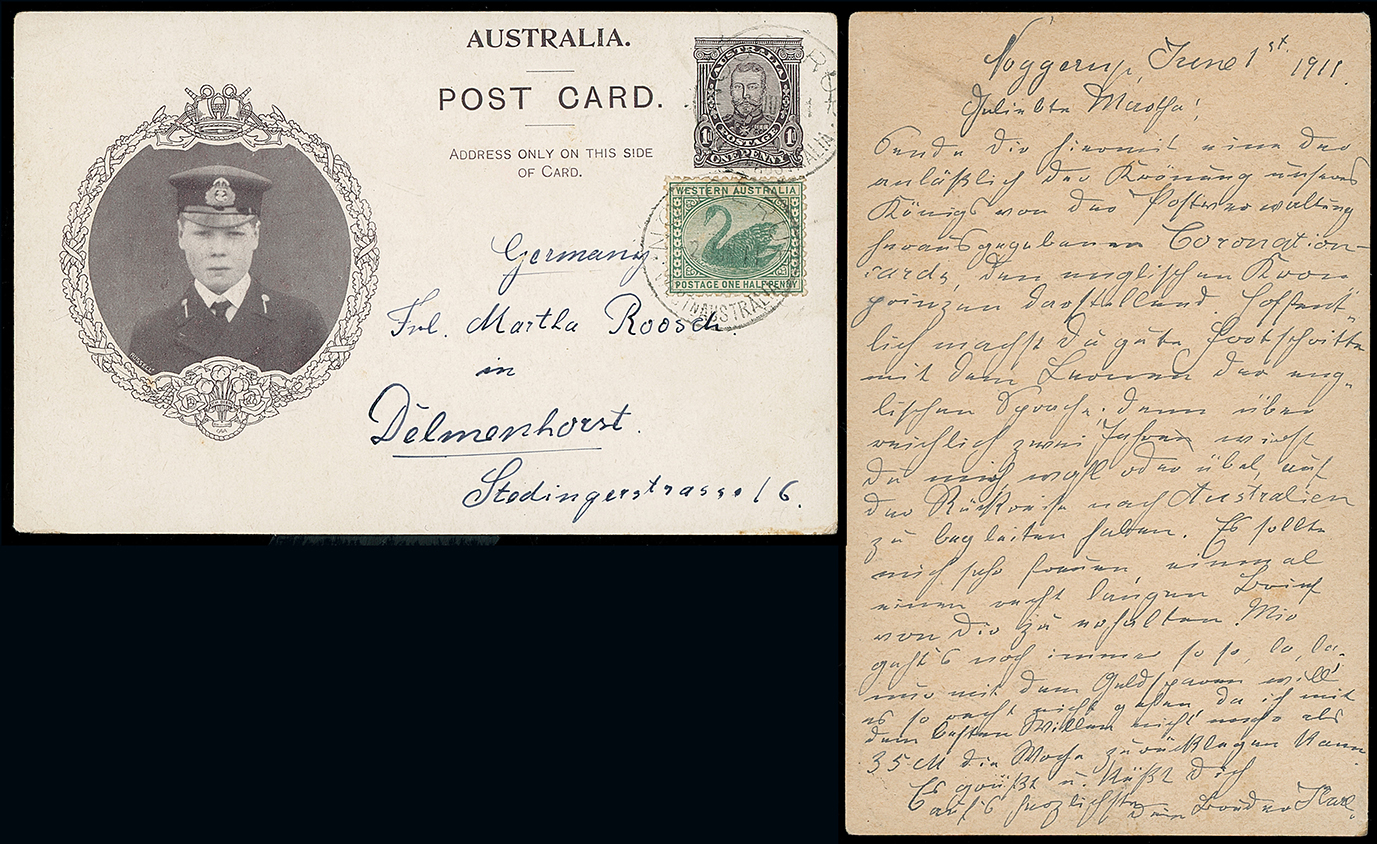 AUSTRALIA.
POST CARD.
ADDRESS ONLY ON THIS SIDE
OF CARD.
AUSTRALIA
POSTAGE
1D 1D
ONE PENNY
WESTERN AUSTRALIA
POSTAGE ONE HALFPENNY
Germany
Frl. Martha Roosch
in
Delmenhorst.
Stedingerstrasse 16.
Noggerup, June 1st 1911.
Geliebte Martha!
Sende dir hiermit eine der
anläßlich der Krönung unseres
Königs von der Postverwaltung
herausgegebenen Coronation-
cards, den englischen Kron-
prinzen darstellend. Hoffent-
lich machst du gute Fortschritte
mit dem Lernen der eng-
lischen Sprache, denn über
reichlich zwei Jahren wirst
du mich wohl oder übel auf
der Rückreise nach Australien
zu begleiten haben. Es sollte
mich sehr freuen einmal
einen recht langen Brief
von dir zu erhalten. Mir
geht's noch immer so so, la, la.
nur mit dem Geldsparen will
es so recht nicht gehen, da ich mit
dem besten Willen nicht mehr als
35 M die Woche zurücklegen kann.
Es grüßt u. küßt Dich
auf's herzlichste dein Bruder Karl.